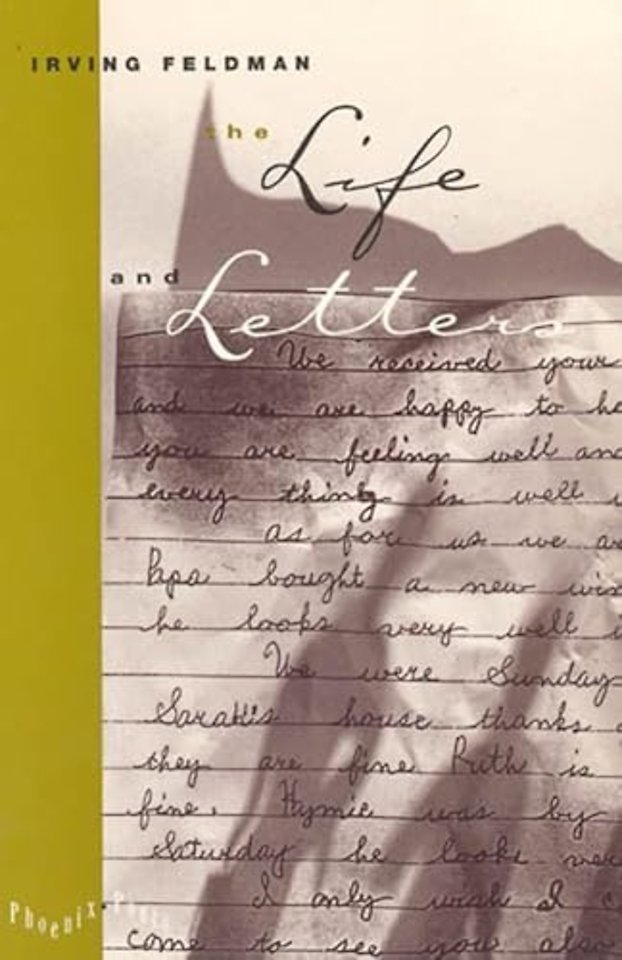 IRVING FELDMAN
the Life
and Letters
We received your
and we are happy to he
you are feeling well and
every thing is well
as for us we a
Papa bought a new
he looks very well i
We were Sunday
SaraH's house thanks
they are fine Ruth is
fine. Hymie was by
Saturday he looks ver
I only wish I c
come to see you also
Phoenix Poets